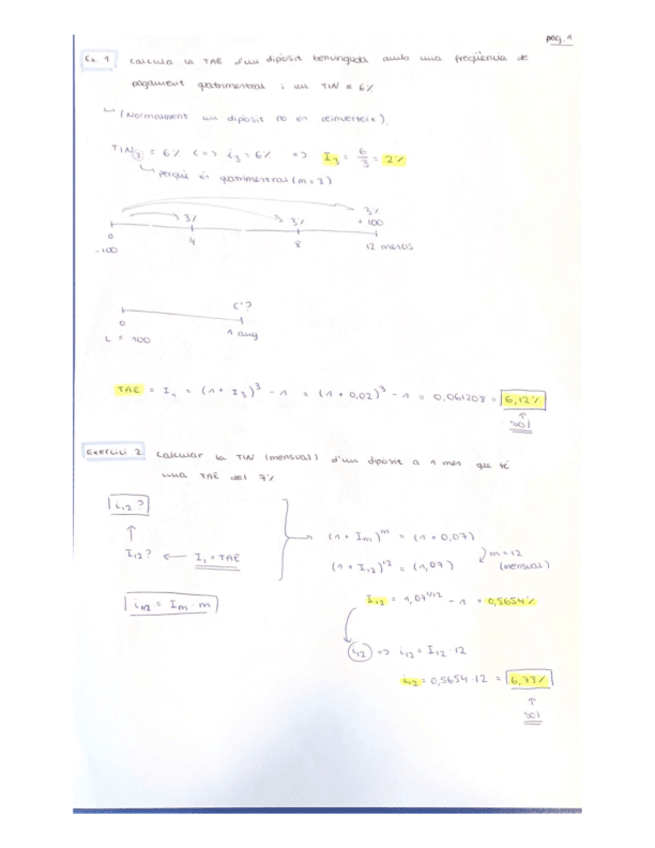 pàg. 1
Ex. 1 Calcula la TAE d'un dipòsit benvinguda amb una freqüència de
pagament quatrimestral i un TIN = 6%
(Normalment un dipòsit no es reinverteix).
TIN3 = 6% <=> i3 = 6% => I3 = 6/3 = 2%
perquè és quatrimestral (m = 3)
3% 3% 3%
+ 100
0 4 8 12 mesos
- 100
C'?
0 1 any
C = 100
TAE = I1 = (1 + I3)^3 - 1 = (1 + 0,02)^3 - 1 = 0,061208 = 6,12%
↑
sol
Exercici 2 Calcular la TIN (mensual) d'un dipòsit a 1 mes que té
una TAE del 7%
i12?
↑
I12? ← I1 = TAE
i12 = Im · m
(1 + Im)^m = (1 + 0,07)
m = 12
(1 + I12)^12 = (1,07) (mensual)
I12 = 1,07^1/12 - 1 = 0,5654%
i12 => i12 = I12 · 12
i12 = 0,5654 · 12 = 6,78%
↑
sol